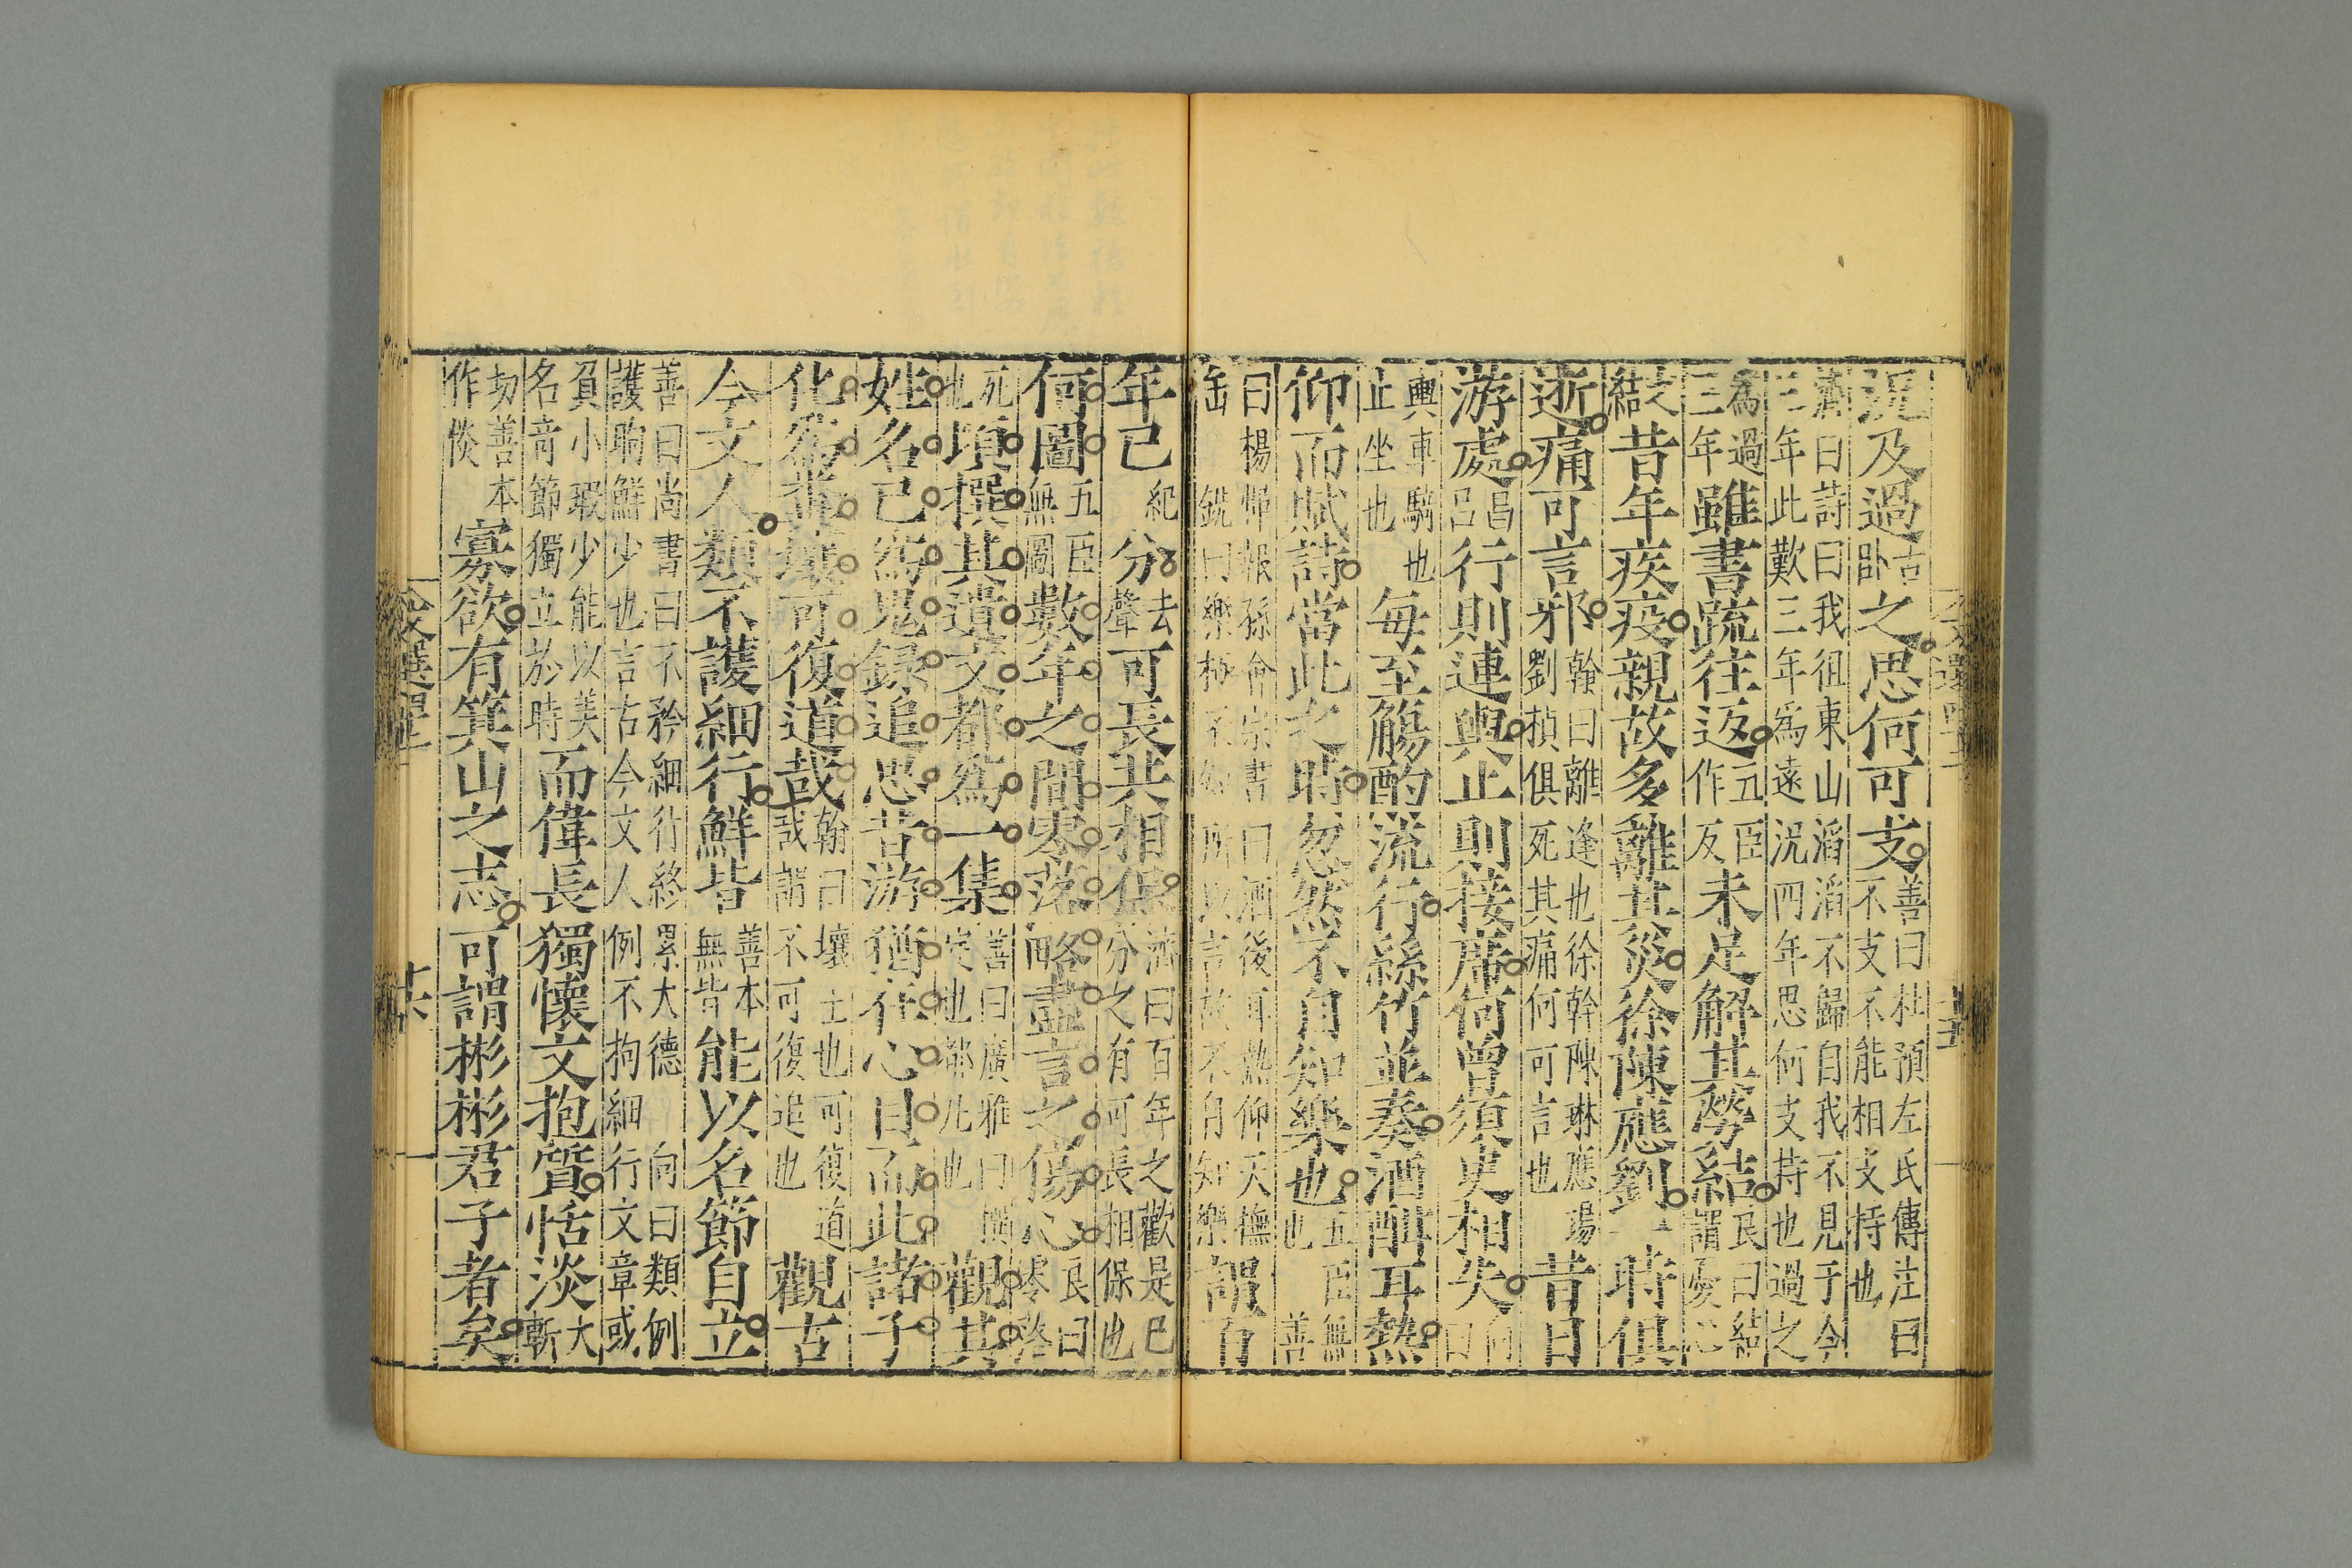 況及過古臥之思何可支善曰杜預左氏傳注曰不支不能相支持也
濟曰詩曰我徂東山滔滔不歸自我不見于今三年此歎三年爲遠況四年思何支持也過之
為過三年雖書䟽往返五臣作反未足解其勞結良曰結謂憂心
結之昔年疾疫親故多離其災徐陳應劉一時俱
逝痛可言邪翰曰離逢也徐幹陳琳應瑒劉楨俱死其痛何可言也昔日
游處昌呂行則連輿止則接席何曾須臾相失向曰
輿車騎也止坐也每至觴酌流行絲竹並奏酒酣耳熱
仰而賦詩當此之時忽然不自知樂也五臣無也善
曰楊惲報孫會宗書曰酒後耳熱仰天撫缶銑曰樂極不知所以言故不自知樂謂百
年已紀分去聲可長共相保濟曰百年之歡是已分之有可長相保也
何圖五臣無圖數年之間零落略盡言之傷心良曰零落
死也頃撰其遺文都爲一集善曰廣雅曰撰定也都凡也觀其
姓名已爲鬼錄追思昔游猶在心目而此諸子
化爲糞壤可復道哉翰曰壤土也可復道哉謂不可復追也觀古
今文人類不護細行鮮皆善本無皆能以名節自立
善曰尚書曰不矜細行終累大德向曰類例護晌鮮少也言古今文人例不拘細行文章或
負小瑕少能以美名音節獨立於時而偉長獨懷文抱質恬淡大斬
切善本作惔寡欲有箕山之志可謂彬彬君子者矣